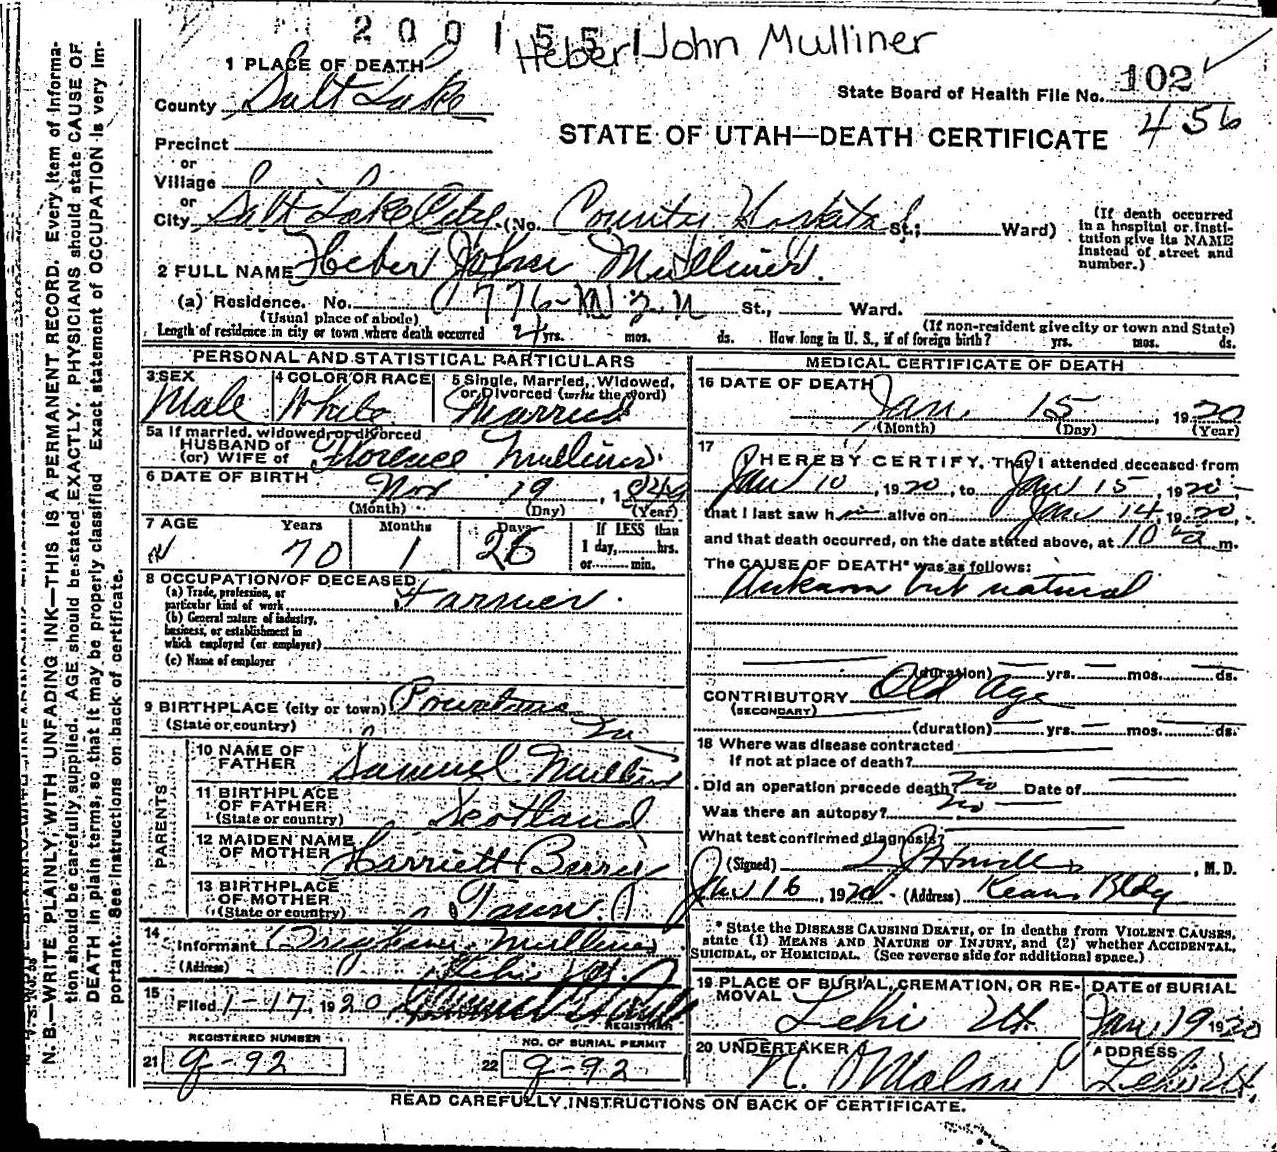 2001551
Heber John Mulliner
1 PLACE OF DEATH
County Salt Lake
State Board of Health File No. 102
456
STATE OF UTAH—DEATH CERTIFICATE
Precinct
or
Village
or
City Salt Lake City (No. County Hospital St.; Ward)
(If death occurred in a hospital or insti-
tution give its NAME
instead of street and
number.)
2 FULL NAME Heber John Mulliner.
(a) Residence. No. 776 W 2 N St., Ward.
(Usual place of abode) (If non-resident give city or town and State)
Length of residence in city or town where death occurred yrs. mos. ds. How long in U. S., if of foreign birth? yrs. mos. ds.
PERSONAL AND STATISTICAL PARTICULARS
3 SEX Male
4 COLOR OR RACE White
5 Single, Married, Widowed,
or Divorced (write the word)
Married
5a If married, widowed, or divorced
HUSBAND of
(or) WIFE of Florence Mulliner.
6 DATE OF BIRTH Nov 19, 1849
(Month) (Day) (Year)
7 AGE Years Months Days If LESS than
70 1 26 1 day, hrs.
or min.
8 OCCUPATION OF DECEASED
(a) Trade, profession, or
particular kind of work Farmer.
(b) General nature of industry,
business, or establishment in
which employed (or employer)
(c) Name of employer
9 BIRTHPLACE (city or town)
(State or country)
PARENTS
10 NAME OF
FATHER Samuel Mulliner
11 BIRTHPLACE
OF FATHER
(State or country) Scotland
12 MAIDEN NAME
OF MOTHER Harriett
13 BIRTHPLACE
OF MOTHER
(State or country)
14 Informant Brigham Mulliner
(Address) Lehi Ut.
15 Filed 1-17, 1920
REGISTRAR
REGISTERED NUMBER
21 g-92
NO. OF BURIAL PERMIT
22 g-92
MEDICAL CERTIFICATE OF DEATH
16 DATE OF DEATH
Jan. 15, 1920
(Month) (Day) (Year)
17 I HEREBY CERTIFY, That I attended deceased from
Jan 10, 1920, to Jan 15, 1920
that I last saw h im alive on Jan 14, 1920,
and that death occurred, on the date stated above, at 10 a m.
The CAUSE OF DEATH* was as follows:
Unkown but natural
(duration) yrs. mos. ds.
CONTRIBUTORY Old Age
(SECONDARY)
(duration) yrs. mos. ds.
18 Where was disease contracted
If not at place of death?
Did an operation precede death? no Date of
Was there an autopsy? no
What test confirmed diagnosis?
(Signed) , M. D.
Jan 16, 1920 (Address) Kearns Bldg
* State the DISEASE CAUSING DEATH, or in deaths from VIOLENT CAUSES,
state (1) MEANS AND NATURE OF INJURY, and (2) whether ACCIDENTAL,
SUICIDAL, or HOMICIDAL. (See reverse side for additional space.)
19 PLACE OF BURIAL, CREMATION, OR RE-
MOVAL Lehi Ut.
DATE of BURIAL
Jan 19 1920
20 UNDERTAKER
ADDRESS
Lehi Ut.
READ CAREFULLY INSTRUCTIONS ON BACK OF CERTIFICATE.
N. B.—WRITE PLAINLY, WITH UNFADING INK—THIS IS A PERMANENT RECORD. Every item of informa-
tion should be carefully supplied. AGE should be stated EXACTLY. PHYSICIANS should state CAUSE OF
DEATH in plain terms, so that it may be properly classified. Exact statement of OCCUPATION is very im-
portant. See instructions on back of certificate.